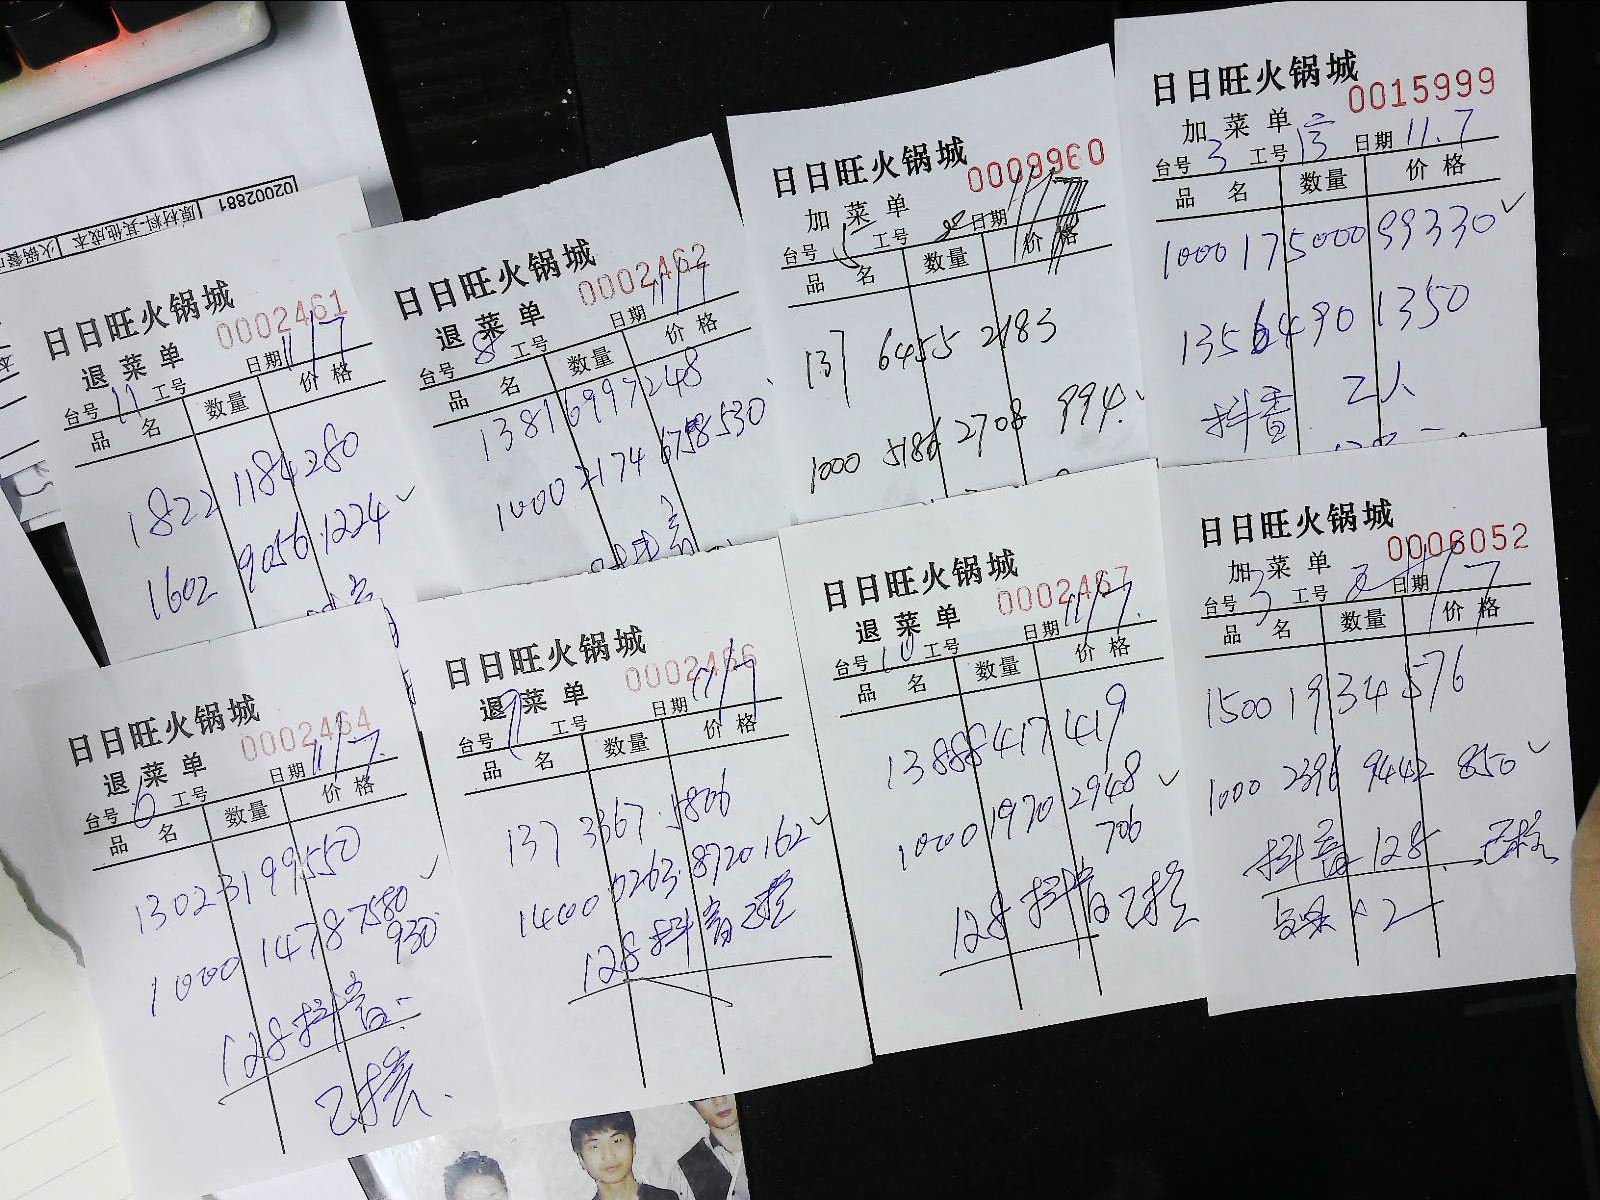 02002881
原材料-其他成本
日日旺火锅城
0002461
退菜单
台号 11 工号 日期 11/7
品名 数量 价格
1822 1184 280
1602 9056 1224
日日旺火锅城
0002462
退菜单
台号 8 工号 日期 11/7
品名 数量 价格
1381 6997 248
1000 2174 6758 530
日日旺火锅城
0009960
加菜单
台号 工号 日期
品名 数量 价格
137 6455 2183
1000 5186 2708 994.
日日旺火锅城
0015999
加菜单
台号 3 工号 13 日期 11.7
品名 数量 价格
1000 175000 99330
1356490 1350
抖音 2人
日日旺火锅城
0002464
退菜单
台号 6 工号 日期 11/7
品名 数量 价格
1302 3199 550
1000 1478 7580
930
128抖音
已核
日日旺火锅城
0002466
退菜单
台号 9 工号 日期 11/7
品名 数量 价格
137 3367 5806
1400 0263 8720 162
128抖音已核
日日旺火锅城
0002467
退菜单
台号 10 工号 日期 11/7.
品名 数量 价格
13888417419
1000 1970 2948
706
128抖音已核
日日旺火锅城
0006052
加菜单
台号 3 工号 日期 11/7
品名 数量 价格
1500 1934 576
1000 2396 9442 850
抖音128 已核